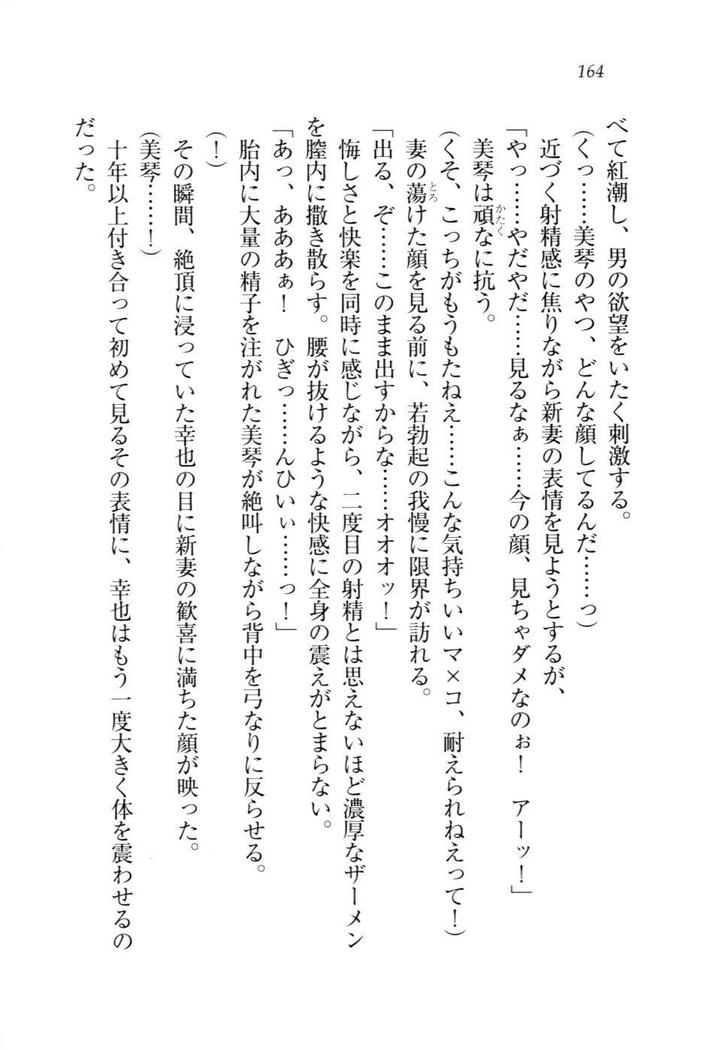 164
べて紅潮し、男の欲望をいたく刺激する。
(くっ……美琴のやつ、どんな顔してるんだ……っ)
近づく射精感に焦りながら新妻の表情を見ようとするが、
「やっ……やだやだ……見るなぁ……今の顔、見ちゃダメなのぉ！　アーッ！」
美琴は頑なに抗う。
かたく
(くそ、こっちがもうもたねえ……こんな気持ちいいマ×コ、耐えられねえって！)
妻の蕩けた顔を見る前に、若勃起の我慢に限界が訪れる。
とろ
「出る、ぞ……このまま出すからな……オオオッ！」
悔しさと快楽を同時に感じながら、二度目の射精とは思えないほど濃厚なザーメン
を膣内に撒き散らす。腰が抜けるような快感に全身の震えがとまらない。
「あっ、あああぁ！　ひぎっ……んひいぃ……っ！」
胎内に大量の精子を注がれた美琴が絶叫しながら背中を弓なりに反らせる。
(！)
その瞬間、絶頂に浸っていた幸也の目に新妻の歓喜に満ちた顔が映った。
(美琴……！)
十年以上付き合って初めて見るその表情に、幸也はもう一度大きく体を震わせるの
だった。